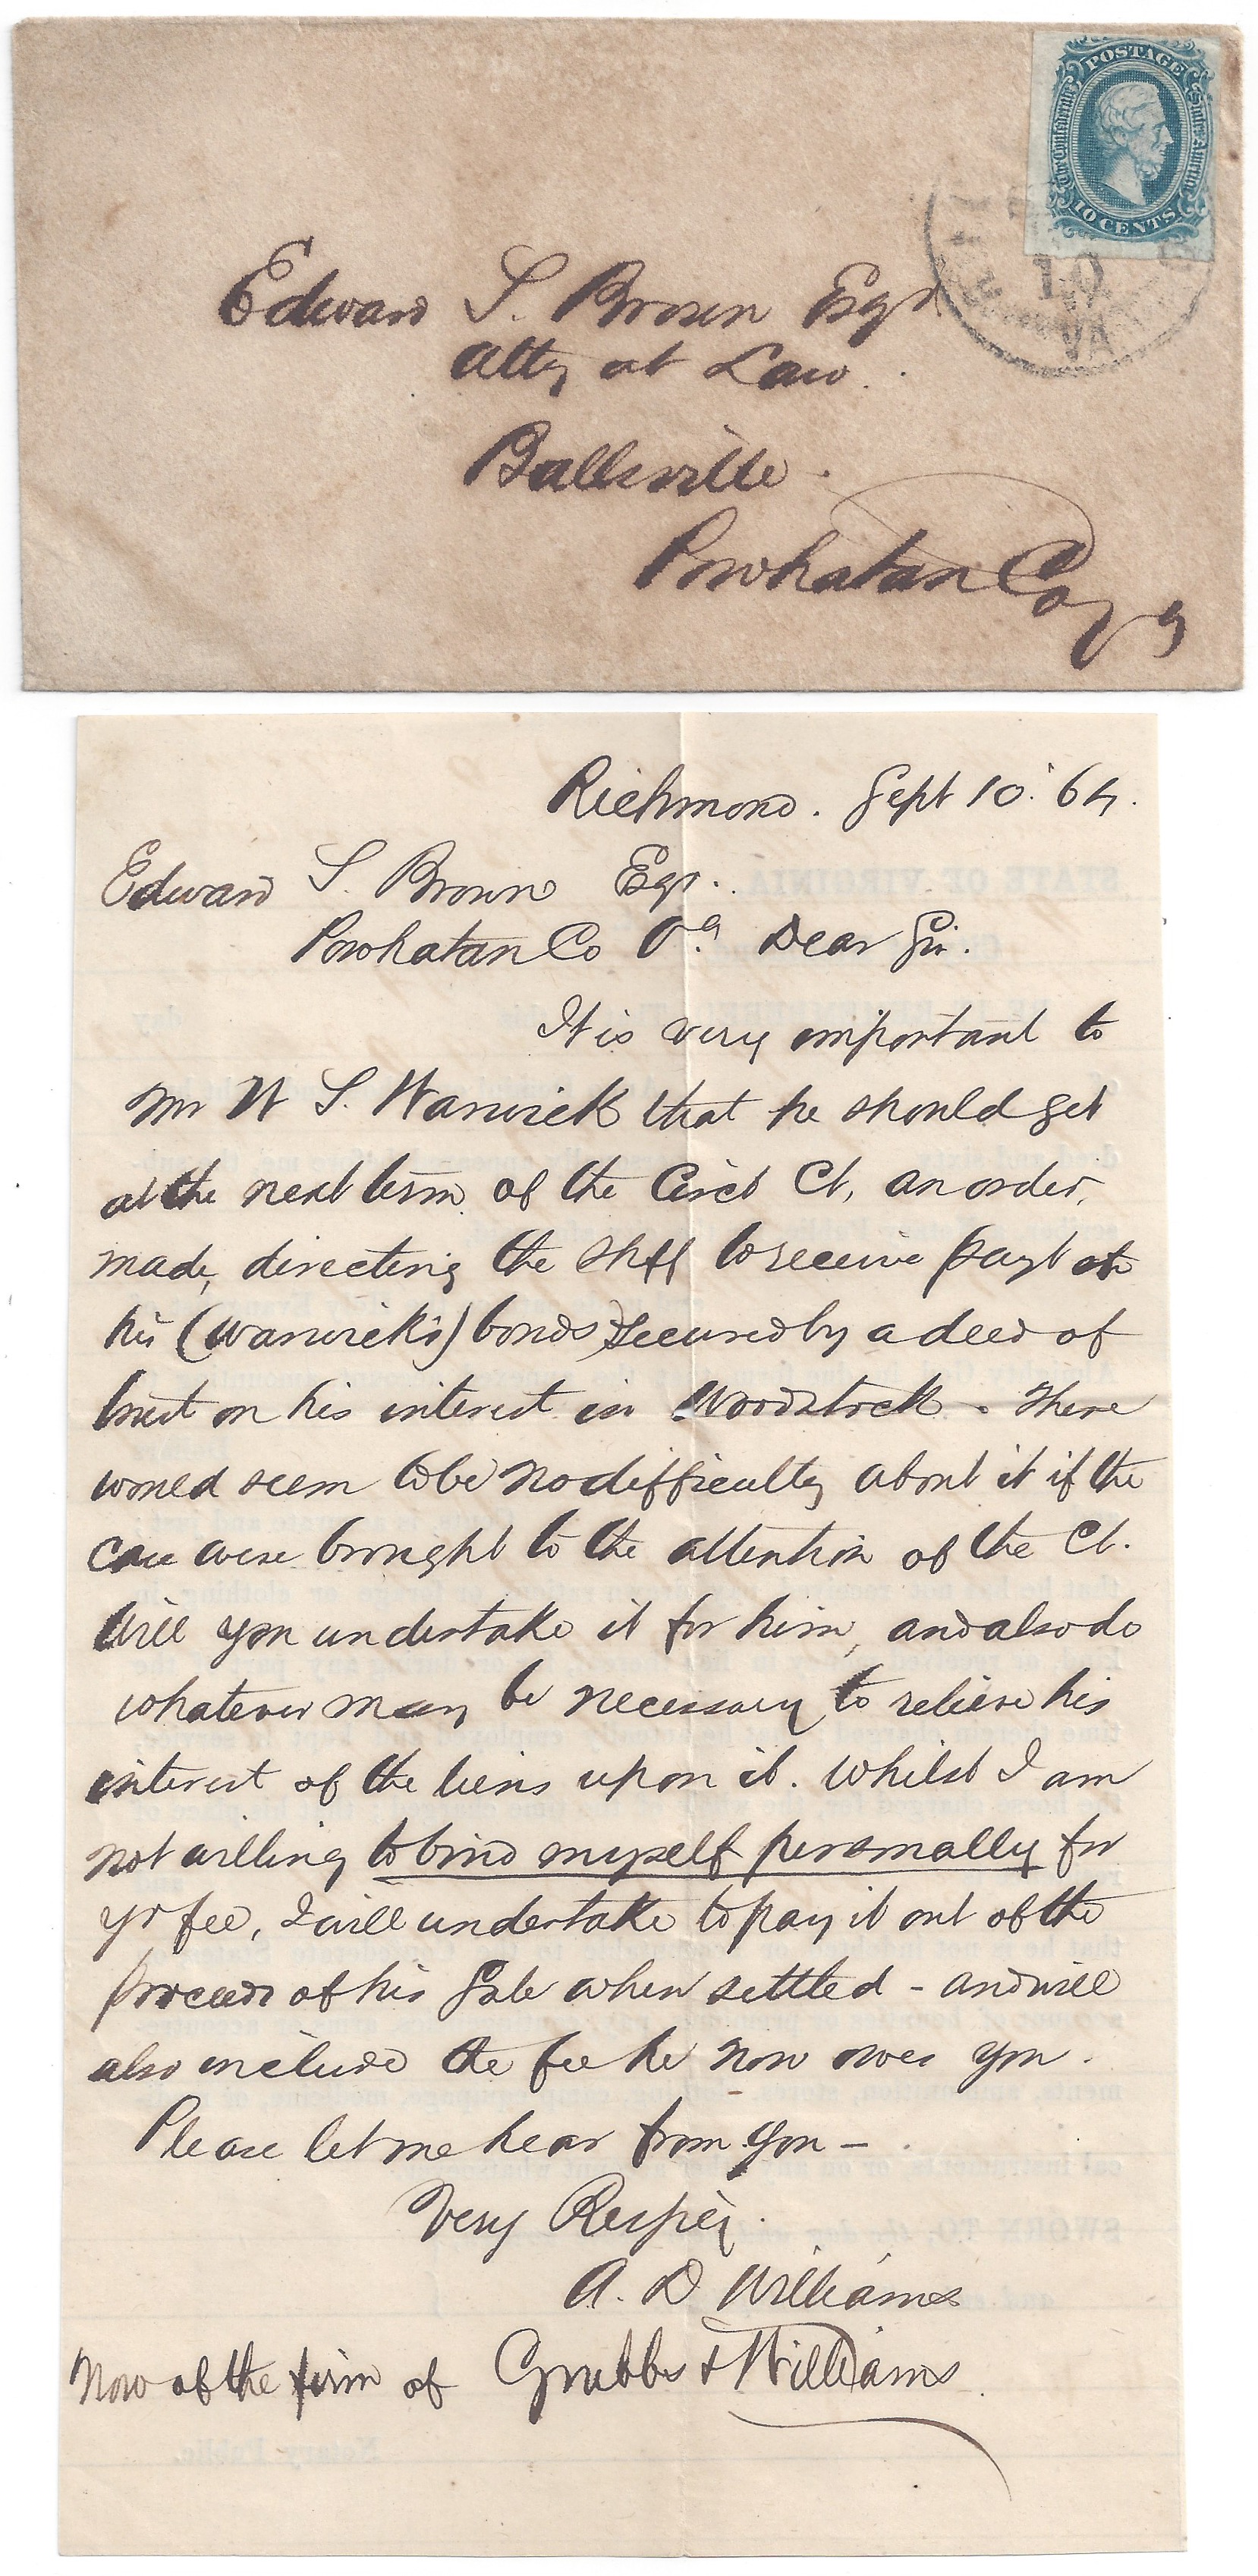 POSTAGE
The Confederate States America
10 CENTS
10
VA
Edward S. Brown Esqr
Atty at Law.
Ballsville.
Powhatan Co Va
Richmond. Sept 10. 64.
Edward S. Brown Esqr.
Powhatan Co Va. Dear Sir.
It is very important to
Mr W S. Warwick that he should get
at the next term of the Circt Ct, an order,
made, directing the Shff to receive payt of
his (Warwick's) bonds secured by a deed of
trust on his interest in Woodstock. There
would seem to be no difficulty about it if the
case were brought to the attention of the Ct.
Will you undertake it for him, and also do
whatever may be necessary to relieve his
interest of the liens upon it. Whilst I am
not willing to bind myself personally for
yr fee, I will undertake to pay it out of the
proceeds of his Sale when settled - and will
also include the fee he now owes you.
Please let me hear from you -
Very Respy.
A. D Williams
Now of the firm of Grubbs & Williams.
TE OF VIRGINIA
SWORN TO,
Notary Public.